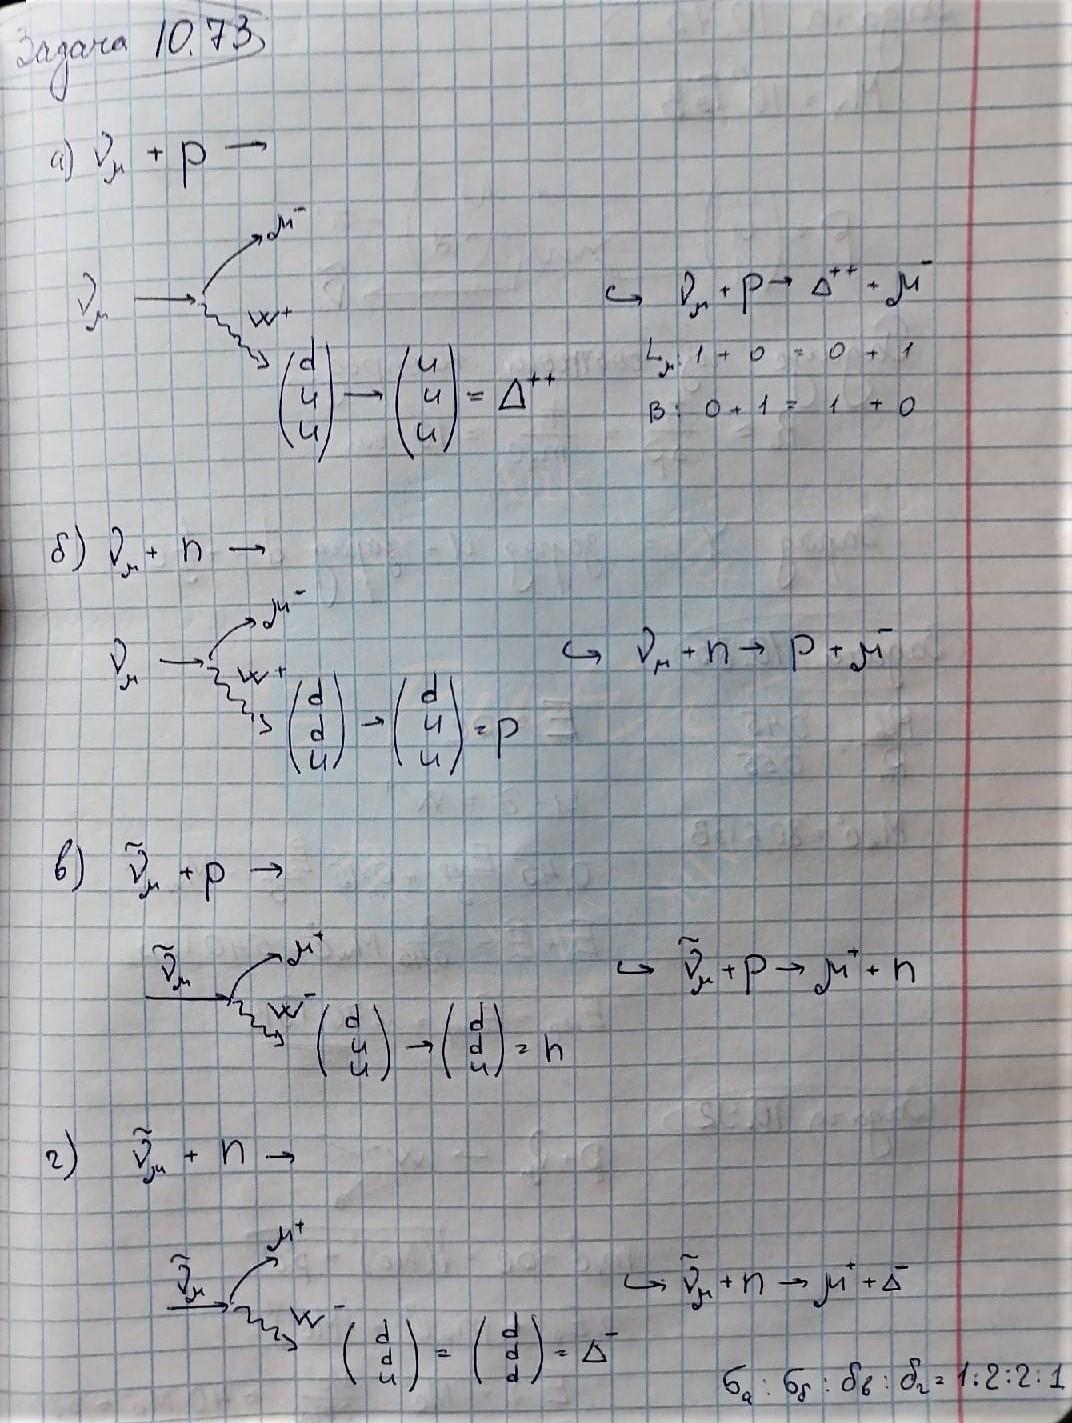 Задача 10.73
а) ν_μ + p →
μ⁻
ν_μ
W⁺
(d u u) → (u u u) = Δ⁺⁺
↪ ν_μ + p → Δ⁺⁺ + μ⁻
L_μ: 1 + 0 = 0 + 1
B: 0 + 1 = 1 + 0
б) ν_μ + n →
μ⁻
ν_μ
W⁺
(d d u) → (d u u) = p
↪ ν_μ + n → p + μ⁻
в) ν̃_μ + p →
ν̃_μ
μ⁺
W⁻
(d u u) → (d d u) = n
↪ ν̃_μ + p → μ⁺ + n
г) ν̃_μ + n →
μ⁺
ν̃_μ
W⁻
(d d u) = (d d d) = Δ⁻
↪ ν̃_μ + n → μ⁺ + Δ⁻
б_а : б_б : б_в : б_г = 1:2:2:1